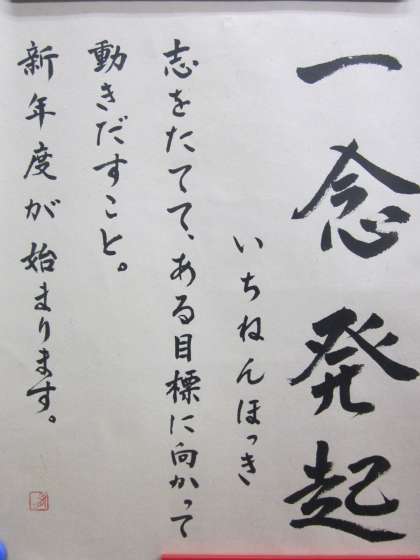 一念発起
いちねんほっき
志をたてて、ある目標に向かって
動きだすこと。
新年度が始まります。